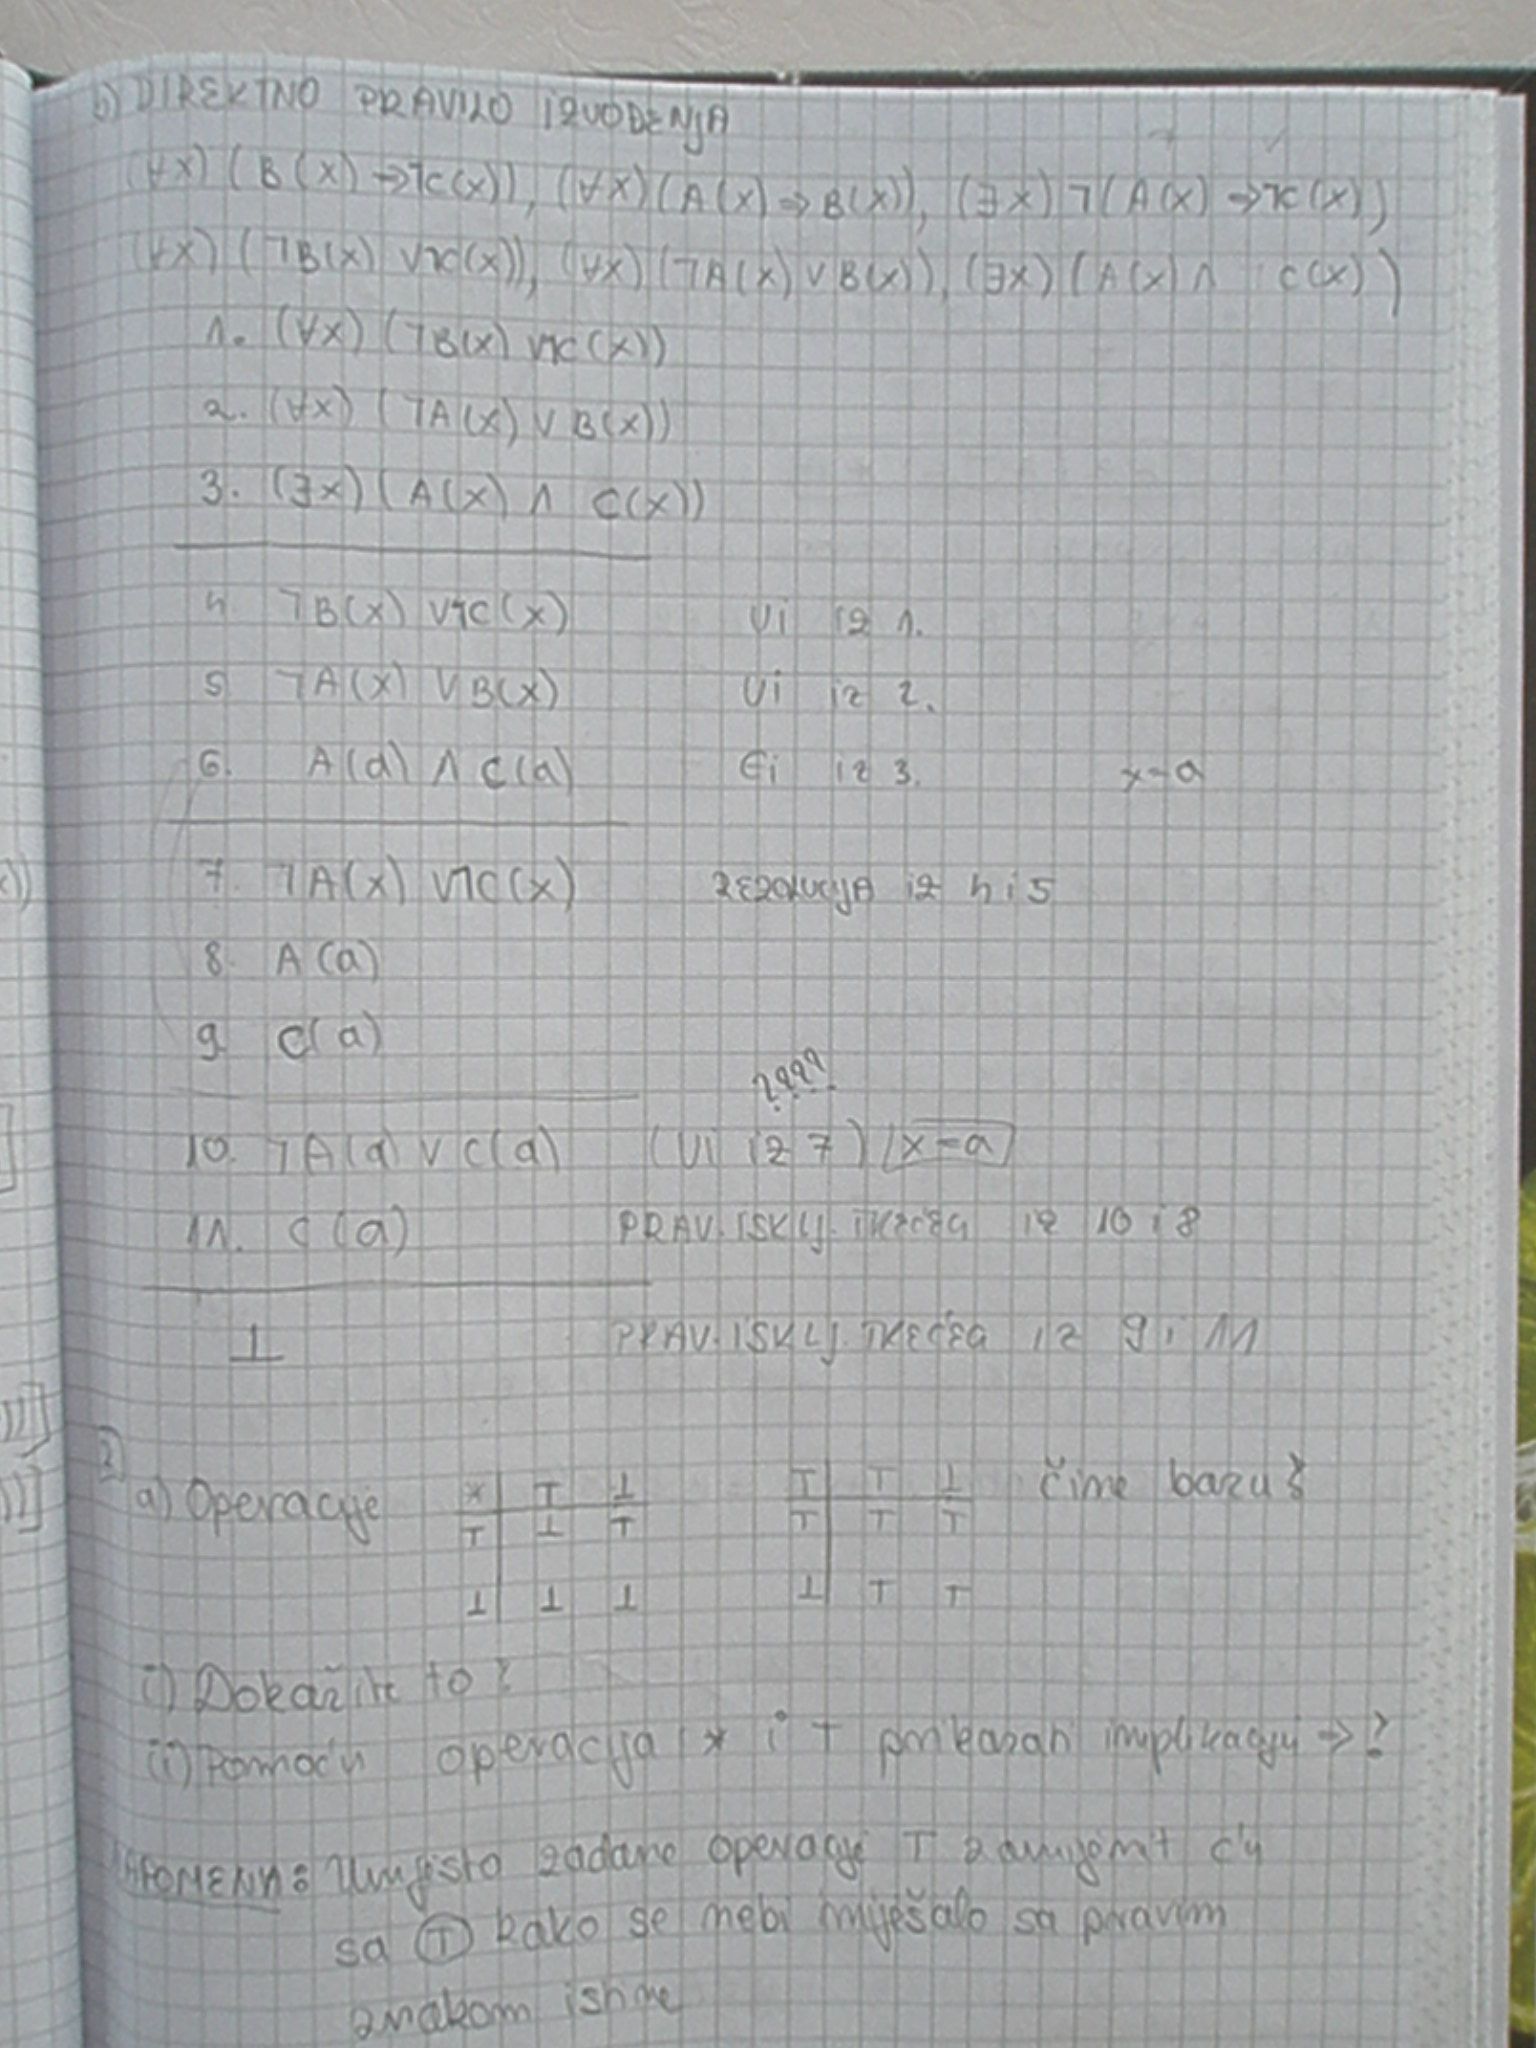 b) DIREKTNO PRAVILO IZVOĐENJA
(∀x) (B(x) ⇒ ¬C(x)), (∀x) (A(x) ⇒ B(x)), (∃x) ¬(A(x) ⇒ ¬C(x))
(∀x) (¬B(x) ∨ ¬C(x)), (∀x) (¬A(x) ∨ B(x)), (∃x) (A(x) ∧ C(x))
1. (∀x) (¬B(x) ∨ ¬C(x))
2. (∀x) (¬A(x) ∨ B(x))
3. (∃x) (A(x) ∧ C(x))
4 ¬B(x) ∨ ¬C(x) Ui iz 1.
5 ¬A(x) ∨ B(x) Ui iz 2.
6. A(a) ∧ C(a) Ei iz 3. x=a
7. ¬A(x) ∨ ¬C(x) REZOLUCIJA iz 4 i 5
8. A(a)
9 C(a)
????
10. ¬A(a) ∨ C(a) (Ui iz 7) x=a
11. C(a) PRAV. ISKLJ. TREĆEG iz 10 i 8
⊥ PRAV. ISKLJ. TREĆEG iz 9 i 11
2
a) Operacije * | T ⊥ T | T ⊥ čine bazu?
T | ⊥ T T | T T
⊥ | ⊥ ⊥ ⊥ | T T
i) Dokažite to?
ii) Pomoću operacija * i T prikazati implikaciju ⇒?
NAPOMENA: Umjesto zadane operacije T zamijenit ću
sa Ⓣ kako se nebi miješalo sa pravim
znakom istine